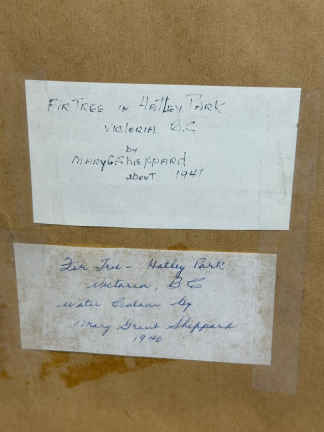 Fir Tree in Hatley Park
Victoria B.C
by
Mary G Sheppard
about 1941
Fir Tree - Hatley Park
Victoria, B.C
Water Colour by
Mary Grant Sheppard
1940